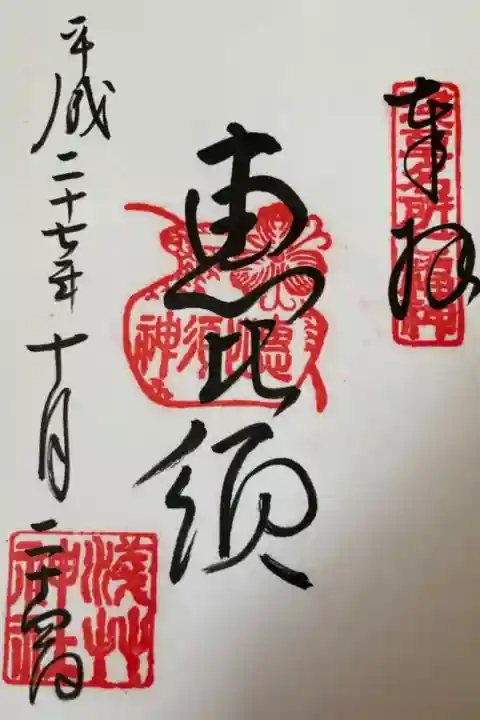 奉拝
浅草名所七福神
恵比須
惠比須神
平成二十七年十月二十四日
淺草神社